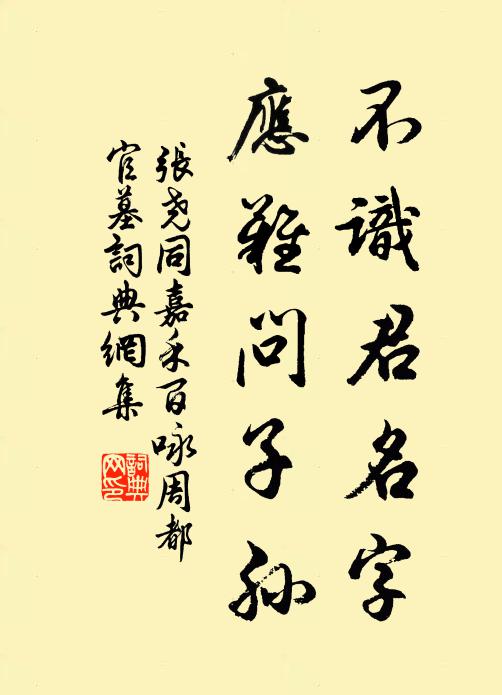 不識君名字
應難問子孫
張堯同嘉禾百咏周都
官墓詞典網集
詞典
网印